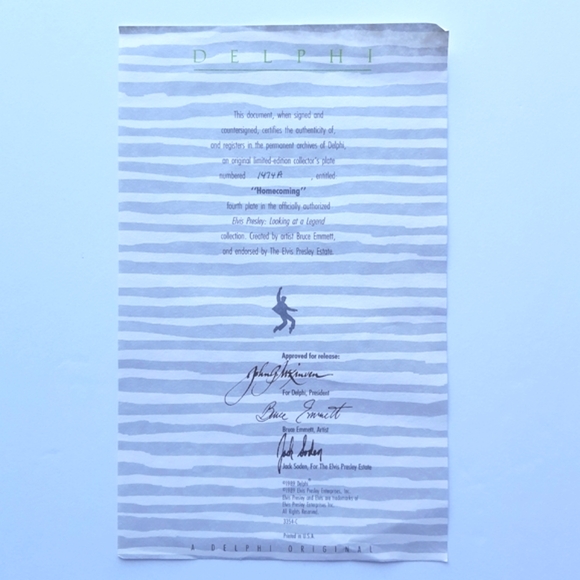 DELPHI
This document, when signed and
countersigned, certifies the authenticity of,
and registers in the permanent archives of Delphi,
an original limited-edition collector's plate
numbered 1474A , entitled:
"Homecoming"
fourth plate in the officially authorized
Elvis Presley: Looking at a Legend
collection. Created by artist Bruce Emmett,
and endorsed by The Elvis Presley Estate.
Approved for release:
For Delphi, President
Bruce Emmett
Bruce Emmett, Artist
Jack Soden
Jack Soden, For The Elvis Presley Estate
©1989 Delphi
©1989 Elvis Presley Enterprises, Inc.
Elvis Presley and Elvis are trademarks of
Elvis Presley Enterprises Inc.
All Rights Reserved.
Printed in U.S.A.
A DELPHI ORIGINAL